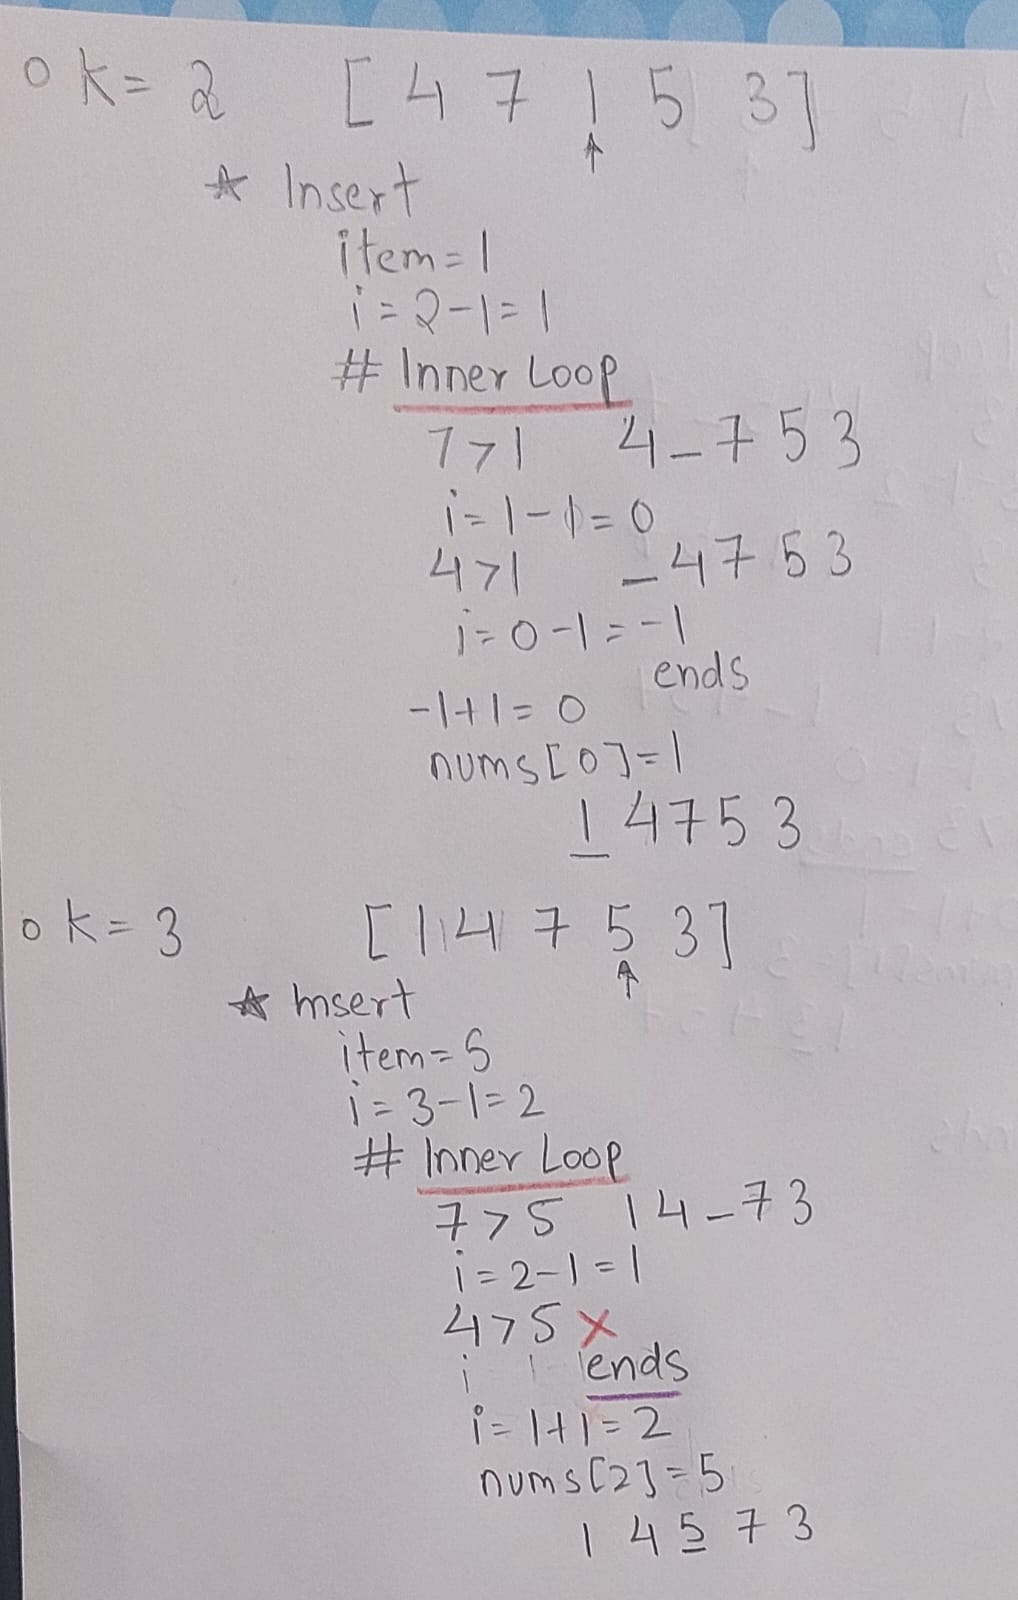 o K = 2 [ 4 7 1 5 3 ]
↑
☆ Insert
item = 1
i = 2 - 1 = 1
# Inner Loop
7 > 1 4 _ 7 5 3
i = 1 - 1 = 0
4 > 1 _ 4 7 5 3
i = 0 - 1 = -1
ends
-1 + 1 = 0
nums [0] = 1
1 4 7 5 3
o K = 3 [ 1 4 7 5 3 ]
↑
☆ Insert
item = 5
i = 3 - 1 = 2
# Inner Loop
7 > 5 1 4 _ 7 3
i = 2 - 1 = 1
4 > 5 X
i ends
i = 1 + 1 = 2
nums [2] = 5
1 4 5 7 3